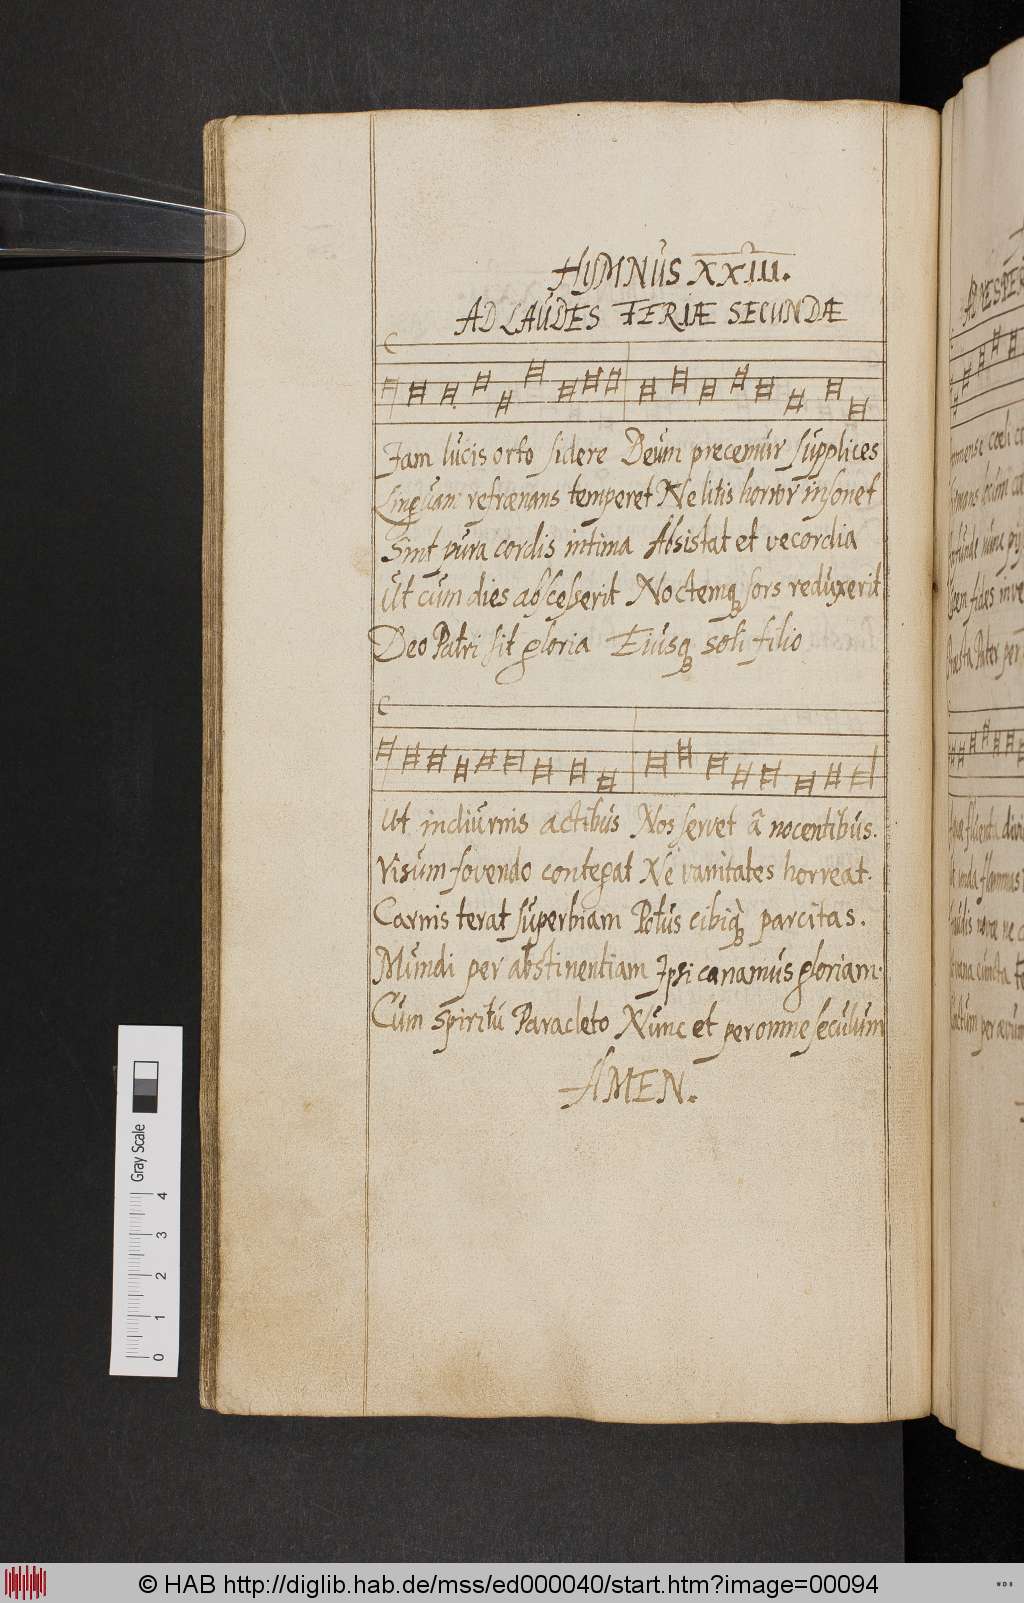 HYMNUS XXIII.
AD LAUDES FERIÆ SECUNDÆ
C
Jam lucis orto sidere Deum precemur supplices
Linguam refrænans temperet Ne litis horror insonet
Sint pura cordis intima Absistat et vecordia
Ut cum dies abscesserit Noctemq sors reduxerit
Deo Patri sit gloria Eiusq soli filio
C
Ut in diurnis actibus Nos servet à nocentibus.
Visum fovendo contegat Ne vanitates horreat.
Carnis terat superbiam Potus cibiq parcitas.
Mundi per abstinentiam Ipsi canamus gloriam.
Cum spiritu Paracleto Nunc et per omne seculum
AMEN.
Gray Scale
0 1 2 3 4
© HAB http://diglib.hab.de/mss/ed000040/start.htm?image=00094